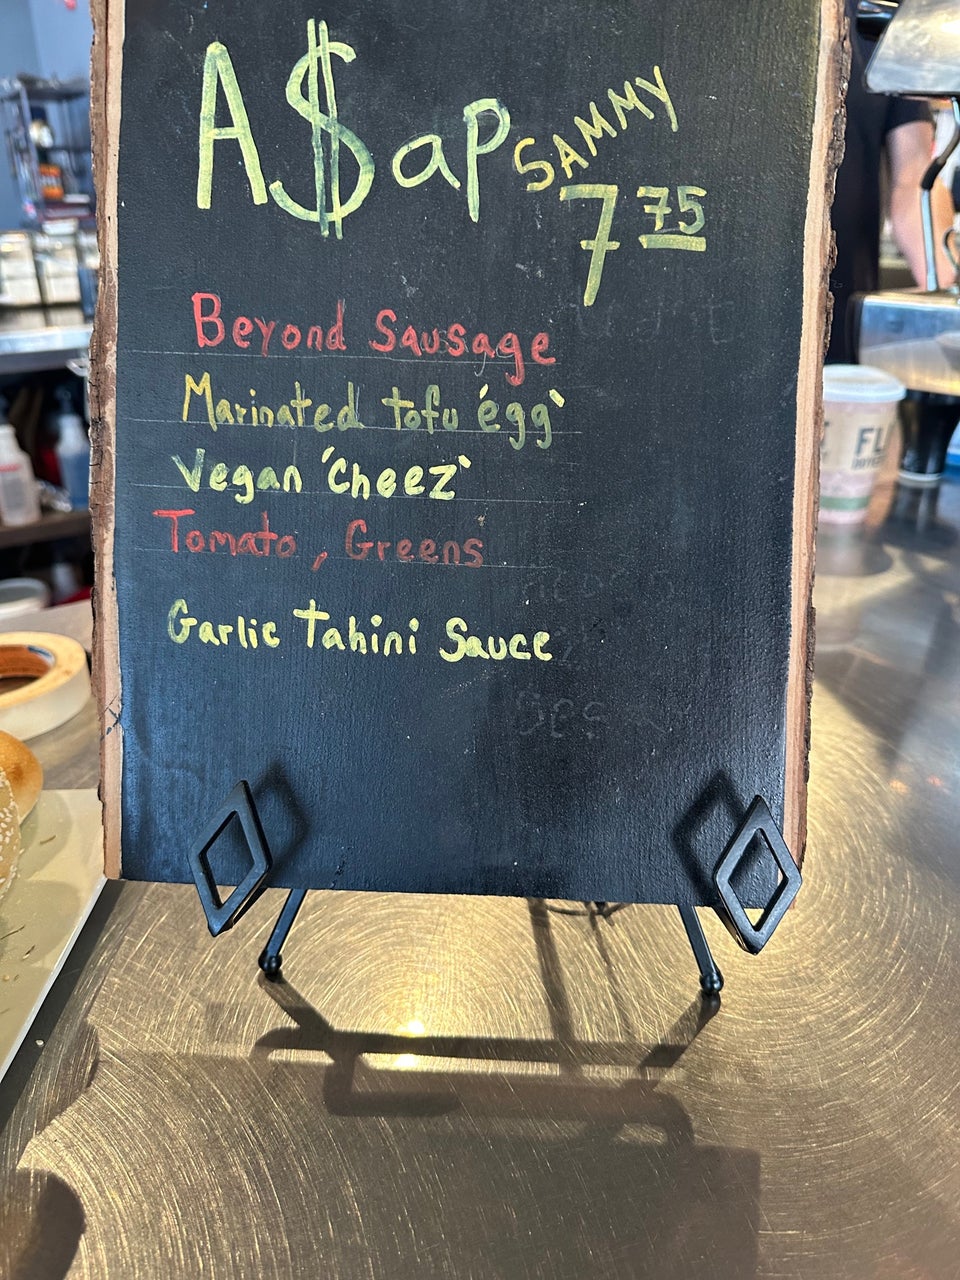 A$ap SAMMY
7 75
Beyond Sausage
Marinated tofu 'egg'
Vegan 'Cheez'
Tomato, Greens
Garlic Tahini Sauce
FL